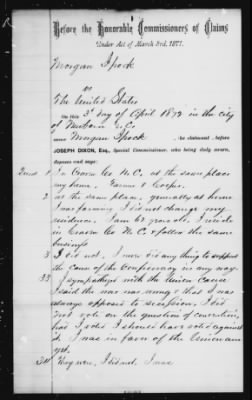 Before the Honorable Commissioners of Claims
Under Act of March 3rd, 1871.
Morgan Spock
vs
The United States
On this 3d day of April 1872 in the city
of Newbern N.C.
came Morgan Spock, the claimant, before
JOSEPH DIXON, Esq., Special Commissioner, who being duly sworn,
Deposes and says:
1 In Craven Co N.C. at the same place
my home. Farmer & Cooper.
2 at the same place, generally at home
I was farming I did not change my
residence. I am 63 years old. I reside
in Craven Co N.C. & follow the same
business
3 I did not. I never did any thing to support
the Cause of the Confederacy in any way.
33 I sympathised with the Union Cause
I said the war was wrong & that I was
always opposed to secession, I did
not vote on the question of convention,
had I voted I should have voted against
it. I was in favor of the Union
34 I was